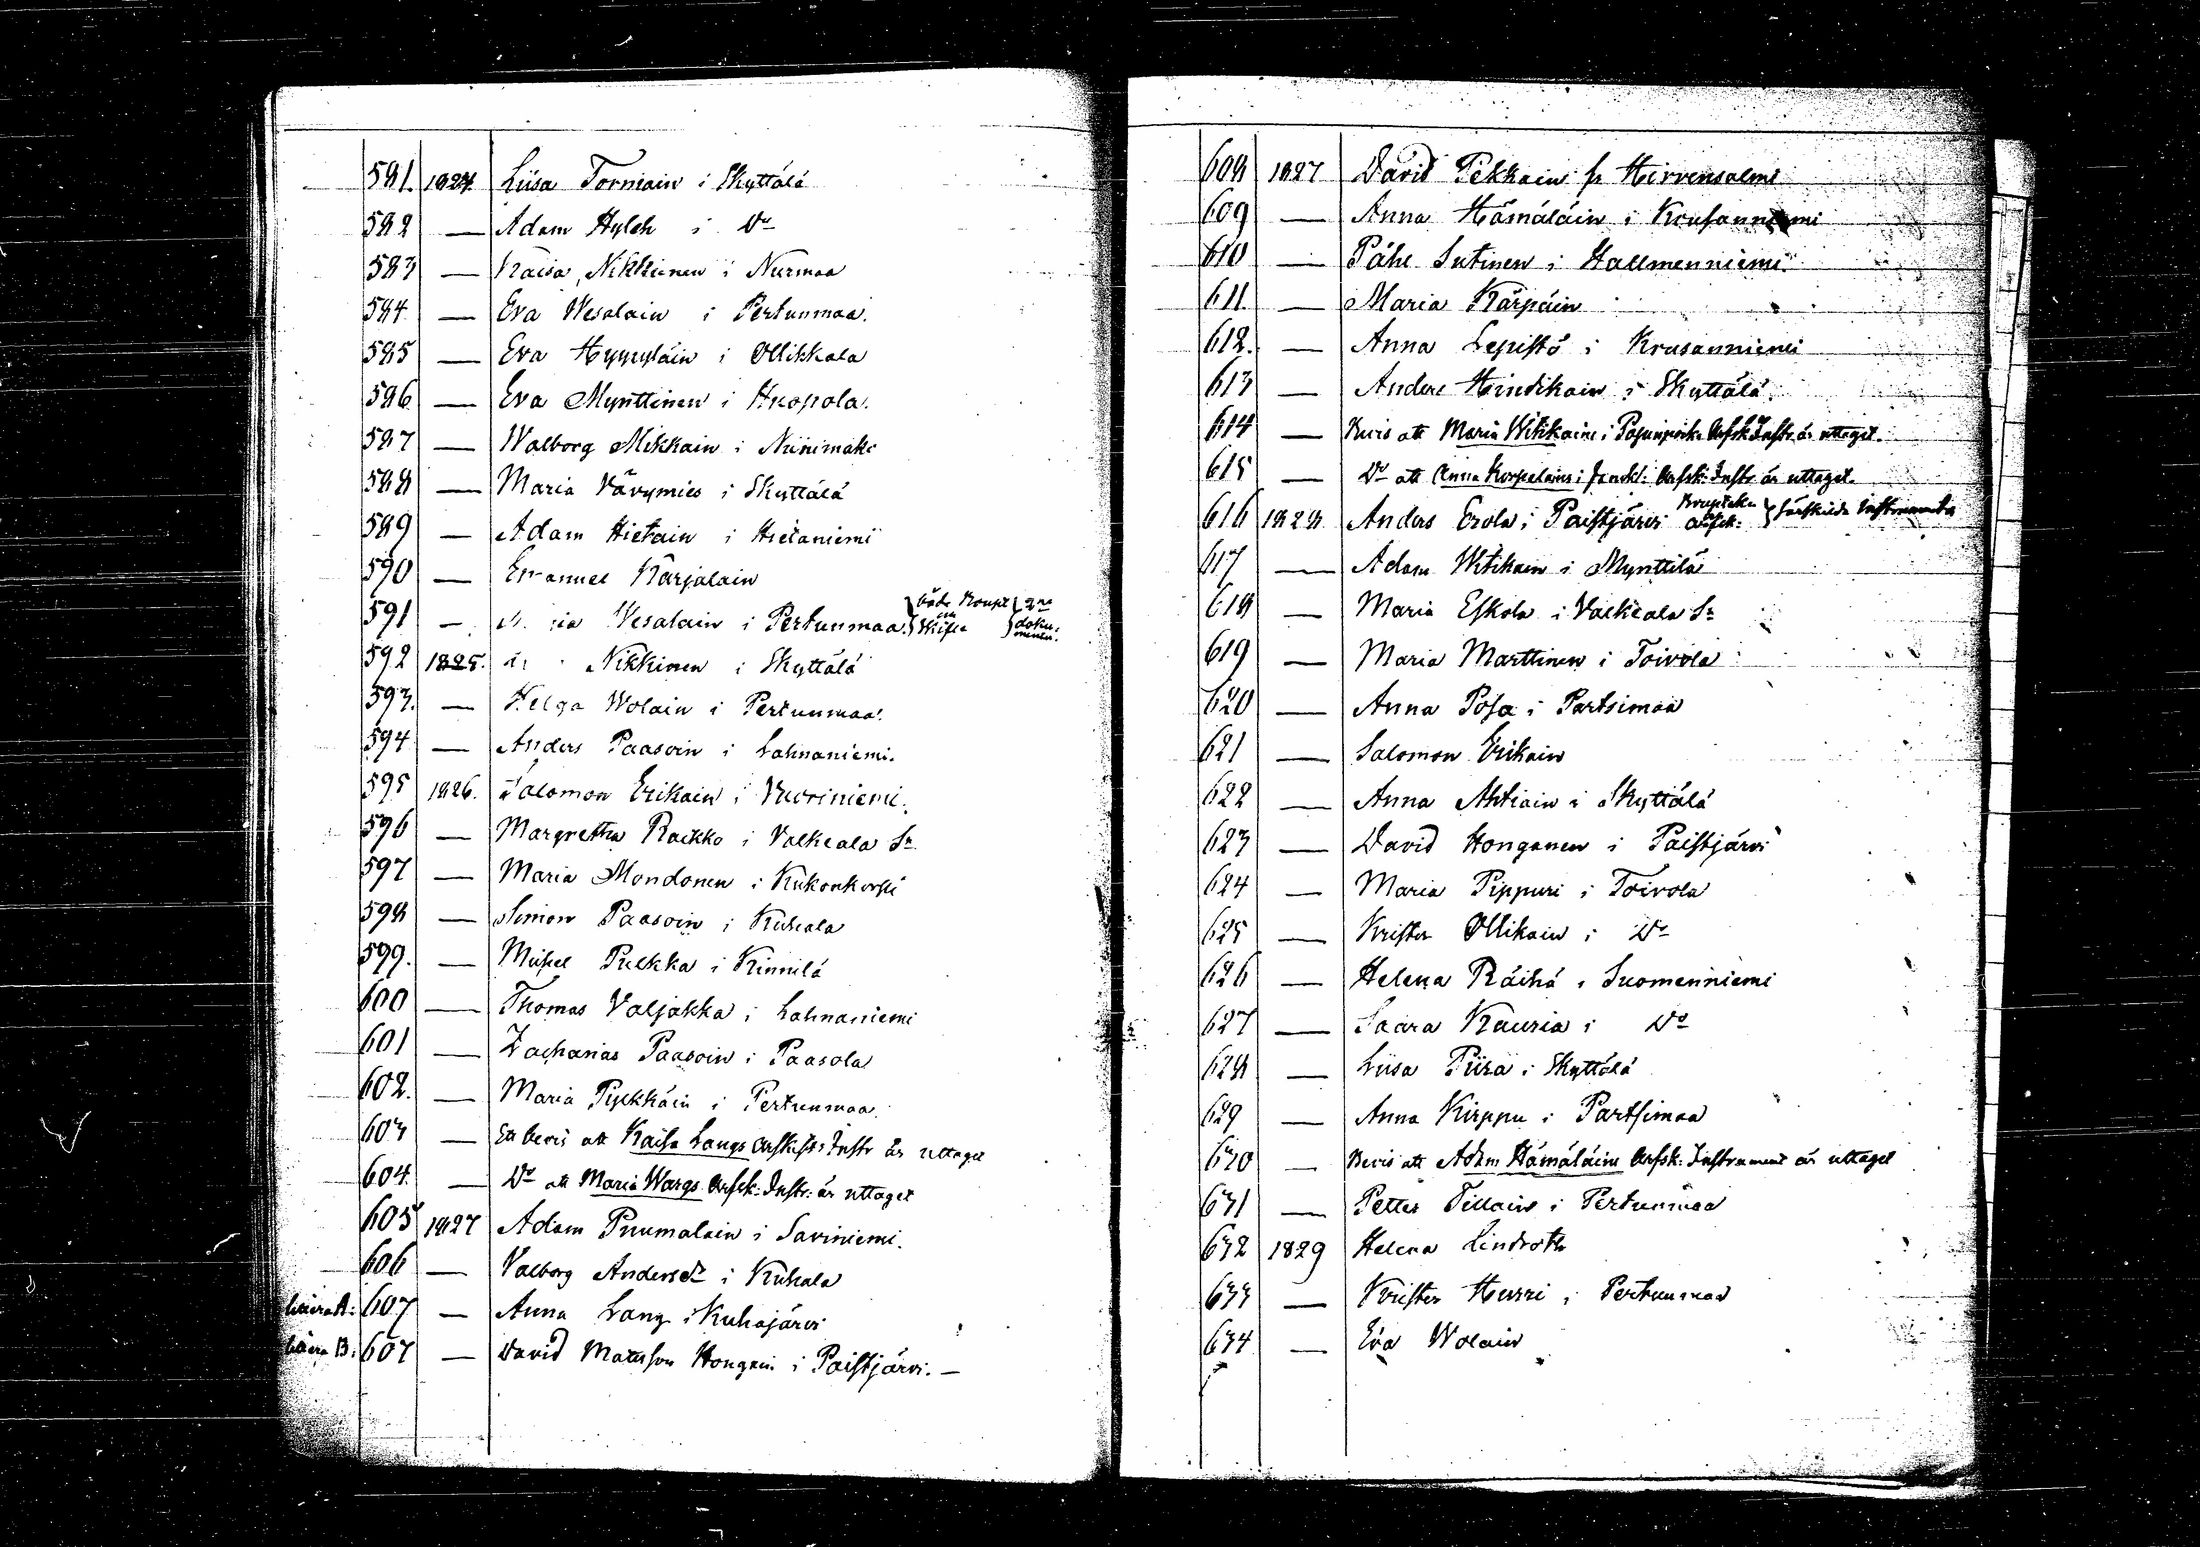 581. 1824. Liisa Torniain i Skyttälä
582 — Adam Hylch i Do
583 — Kaisa Nikkinen i Nurmaa
584 — Eva Wesalain i Pertunmaa.
585 — Eva Hyyryläin i Ollikkala
586 — Eva Mynttinen i Huopola.
587 — Walborg Mikkain i Niinimäki
588 — Maria Värymies i Skyttälä
589 — Adam Hietain i Hietaniemi
590 — Emanuel Karjalain
591 — Wesalain i Pertunmaa. både Koupt och skifte 2ne dokumenter.
592 1825. Nikkinen i Skyttälä
593. — Helga Wolain i Pertunmaa.
594 — Anders Paasoin i Lahnaniemi.
595 1826. Salomon Erikain i Vuoriniemi.
596 — Margretha Raikko i Valkeala Sn
597 — Maria Mondonen i Kukonkorpi
598 — Simon Paasoin i Kuhala
599. — Mickel Pulkka i Kinnilä
600 — Thomas Valjakka i Lahnaniemi
601 — Zacharias Paasoin i Paasola
602. — Maria Pyykkäin i Pertunmaa.
603 — Ett bevis att Kaisa Langs Arfskifts Instr är uttaget
604. — Do att Maria Wargs Arfsk: Instr: är uttaget
605 1827 Adam Puumalain i Saviniemi.
606 — Valborg Andersdr i Kuhala
Littera A: 607 — Anna Lang i Kuhajärvi
Littera B: 607 — David Matsson Hongain i Paistjärvi. —
608 1827 David Pekkain fr Hirvensalmi
609 — Anna Hämäläin i Krusanniemi
610 — Påhl Sutinen i Hallmenniemi.
611 — Maria Kärpäin
612. — Anna Lepistö i Krusanniemi
613 — Anders Hindikain i Skyttälä.
614 — Bevis att Maria Witikains i Arfsk Instr är uttaget.
615 — Do att Anna Korpelains i Arfsk: Instr är uttaget.
616 1828 Anders Erola i Paistjärvi Arfsk: särskilda instrumenter
617 — Adam Witikain i Mynttilä
618 — Maria Eskola i Valkeala Sn
619 — Maria Marttinen i Toivola
620 — Anna Posa i Partsimaa
621 — Salomon Erikain
622 — Anna Ahtiain i Skyttälä
623 — David Honganen i Paistjärvi
624 — Maria Pippuri i Toivola
625 — Krister Ollikain i Do
626 — Helena Räihä i Suomenniemi
627 — Saara Kauria i Do
628 — Liisa Piira i Skyttälä
629 — Anna Kirppu i Partsimaa
630 — Bevis att Adam Hämäläins Arfsk: Instrument är uttaget
631 — Petter Tillain i Pertunmaa
632 1829 Helena Lindroth
633 — Krister Hurri i Pertunmaa
634 — Eva Wolain